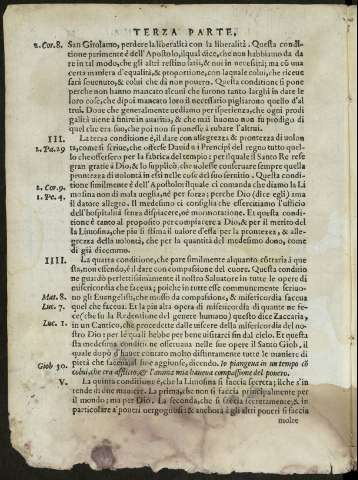 TERZA PARTE.
2. Cor. 8. San Girolamo, perdere la liberalità con la liberalità. Questa condi-
tione parimente è dell'Apostolo, il qual dice, che non habbiamo da da
re in tal modo, che gli altri restino satij, & noi in necessità; ma cō una
certa maniera d'equalità, & proportione, con laquale colui, che riceue
sarà souenuto, & colui che dà non pouero. Questa conditione si pone
perche non hanno mancato alcuni che furono tanto larghi in dare le
loro cose, che dipoi mancato loro il necessario pigliarono quello d'al
trui. Doue che generalmente uediamo per isperienza, che ogni prodi
galità uiene à finire in auaritia, & che mai huomo non fu prodigo di
quel che era suo, che poi non si ponesse à rubare l'altrui.
III. La terza conditione è, il dare con allegrezza, & prontezza di uolon
2. Pa. 29 ta, come si scriue, che offerse Dauid & i Principi del regno tutto quel-
lo che offersero per la fabrica del tempio: per ilquale il Santo Re rese
gran gratie à Dio, & lo supplicò, che uolesse conseruare sempre quella
prontezza di uolontà in essi nelle cose del suo seruitio. Questa condi-
2. Cor. 9. tione similmente è dell'Apostolo: il quale ci comanda che diamo la Li
1. Pe. 4. mosina non di mala uoglia, nè per forza; perche Dio (dice egli) ama
il datore allegro. Il medesimo ci consiglia che essercitiamo l'ufficio
dell'hospitalità senza dispiacere, nè mormoratione. Et questa condi-
tione è tanto al proposito per compiacere a Dio, & per il merito del
la Limosina, che piu si stima il ualore d'essa per la prontezza, & alle-
grezza della uolontà, che per la quantità del medesimo dono, come
di già dicemmo.
IIII. La quarta conditione, che pare similmente alquanto cōtraria à que
sta, non essendo, è il dare con compassione del cuore. Questa conditio
ne guardò perfettissimamente il nostro Saluatore in tutte le opere di
misericordia che faceua; poiche in tutte esse communemente scriuo-
Mat. 8. no gli Euangelisti, che mosso da compassione, & misericordia faceua
Luc. 7. quel che faceua. Et la piu alta opera di misericordia di quante ne fe-
ce (che fu la Redentione del genere humano) questo dice Zaccaria,
Luc. 1. in un Cantico, che procedette dalle uiscere della misericordia del no-
stro Dio: per le quali hebbe per bene uisitarci sin dal cielo. Et questa
medesima conditione osseruata nelle sue opere il Santo Giob, il
quale dopò d'hauer contato molto distintamente tutte le maniere di
pietà che faceua, al fine aggiunse, dicendo. Io piangeua in un tempo cō
Giob 30. colui, che era afflitto, & l'anima mia haueua compassione del pouero.
V. La quinta conditione è, che la Limosina si faccia secreta; ilche s'in
tende di due maniere. La prima, che non si faccia principalmente per
il mondo; ma per Dio. La seconda, che si faccia secretamente; & in
particolare a' poueri uergognosi; & anchora à gli altri poueri si faccia
molte